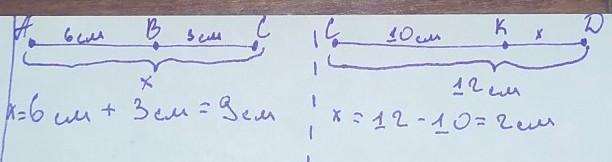 A 6см B 3см C
x
x=6см + 3см = 9см
C 10см K x D
12см
x = 12 - 10 = 2см